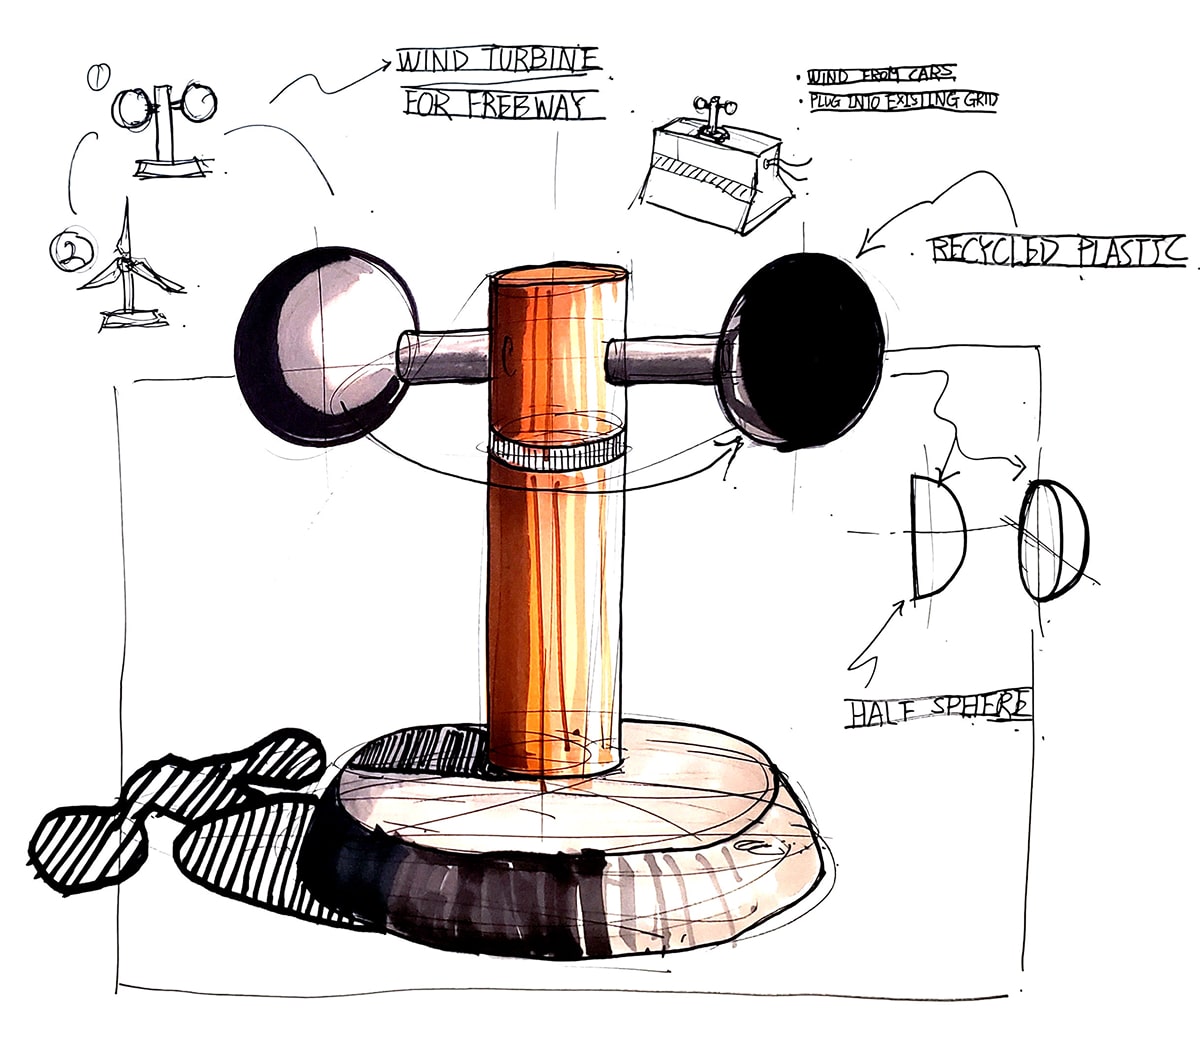 1
WIND TURBINE
FOR FREEWAY
• WIND FROM CARS
• PLUG INTO EXISTING GRID
2
RECYCLED PLASTIC
HALF SPHERE